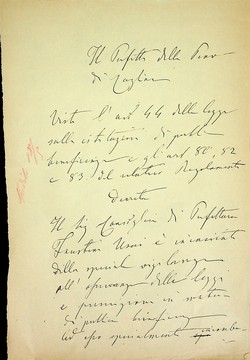 Il Prefetto della Prov
di Cagliari
Visto l'art 44 della legge
sulle istituzioni di pubb
beneficenza e gli art. 80, 82
e 83 del relativo Regolamento
Decreta
Il Sig Consigliere di Prefettura
Faustini è incaricato
della speciale vigilanza
all'osservanza delle leggi
e prescrizioni in materia
di pubblica beneficenza
Ad esso specialmente incombe